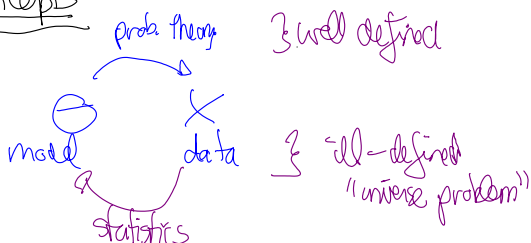 prob. theory } well defined
Θ X
model data } ill-defined
"inverse problem"
statistics